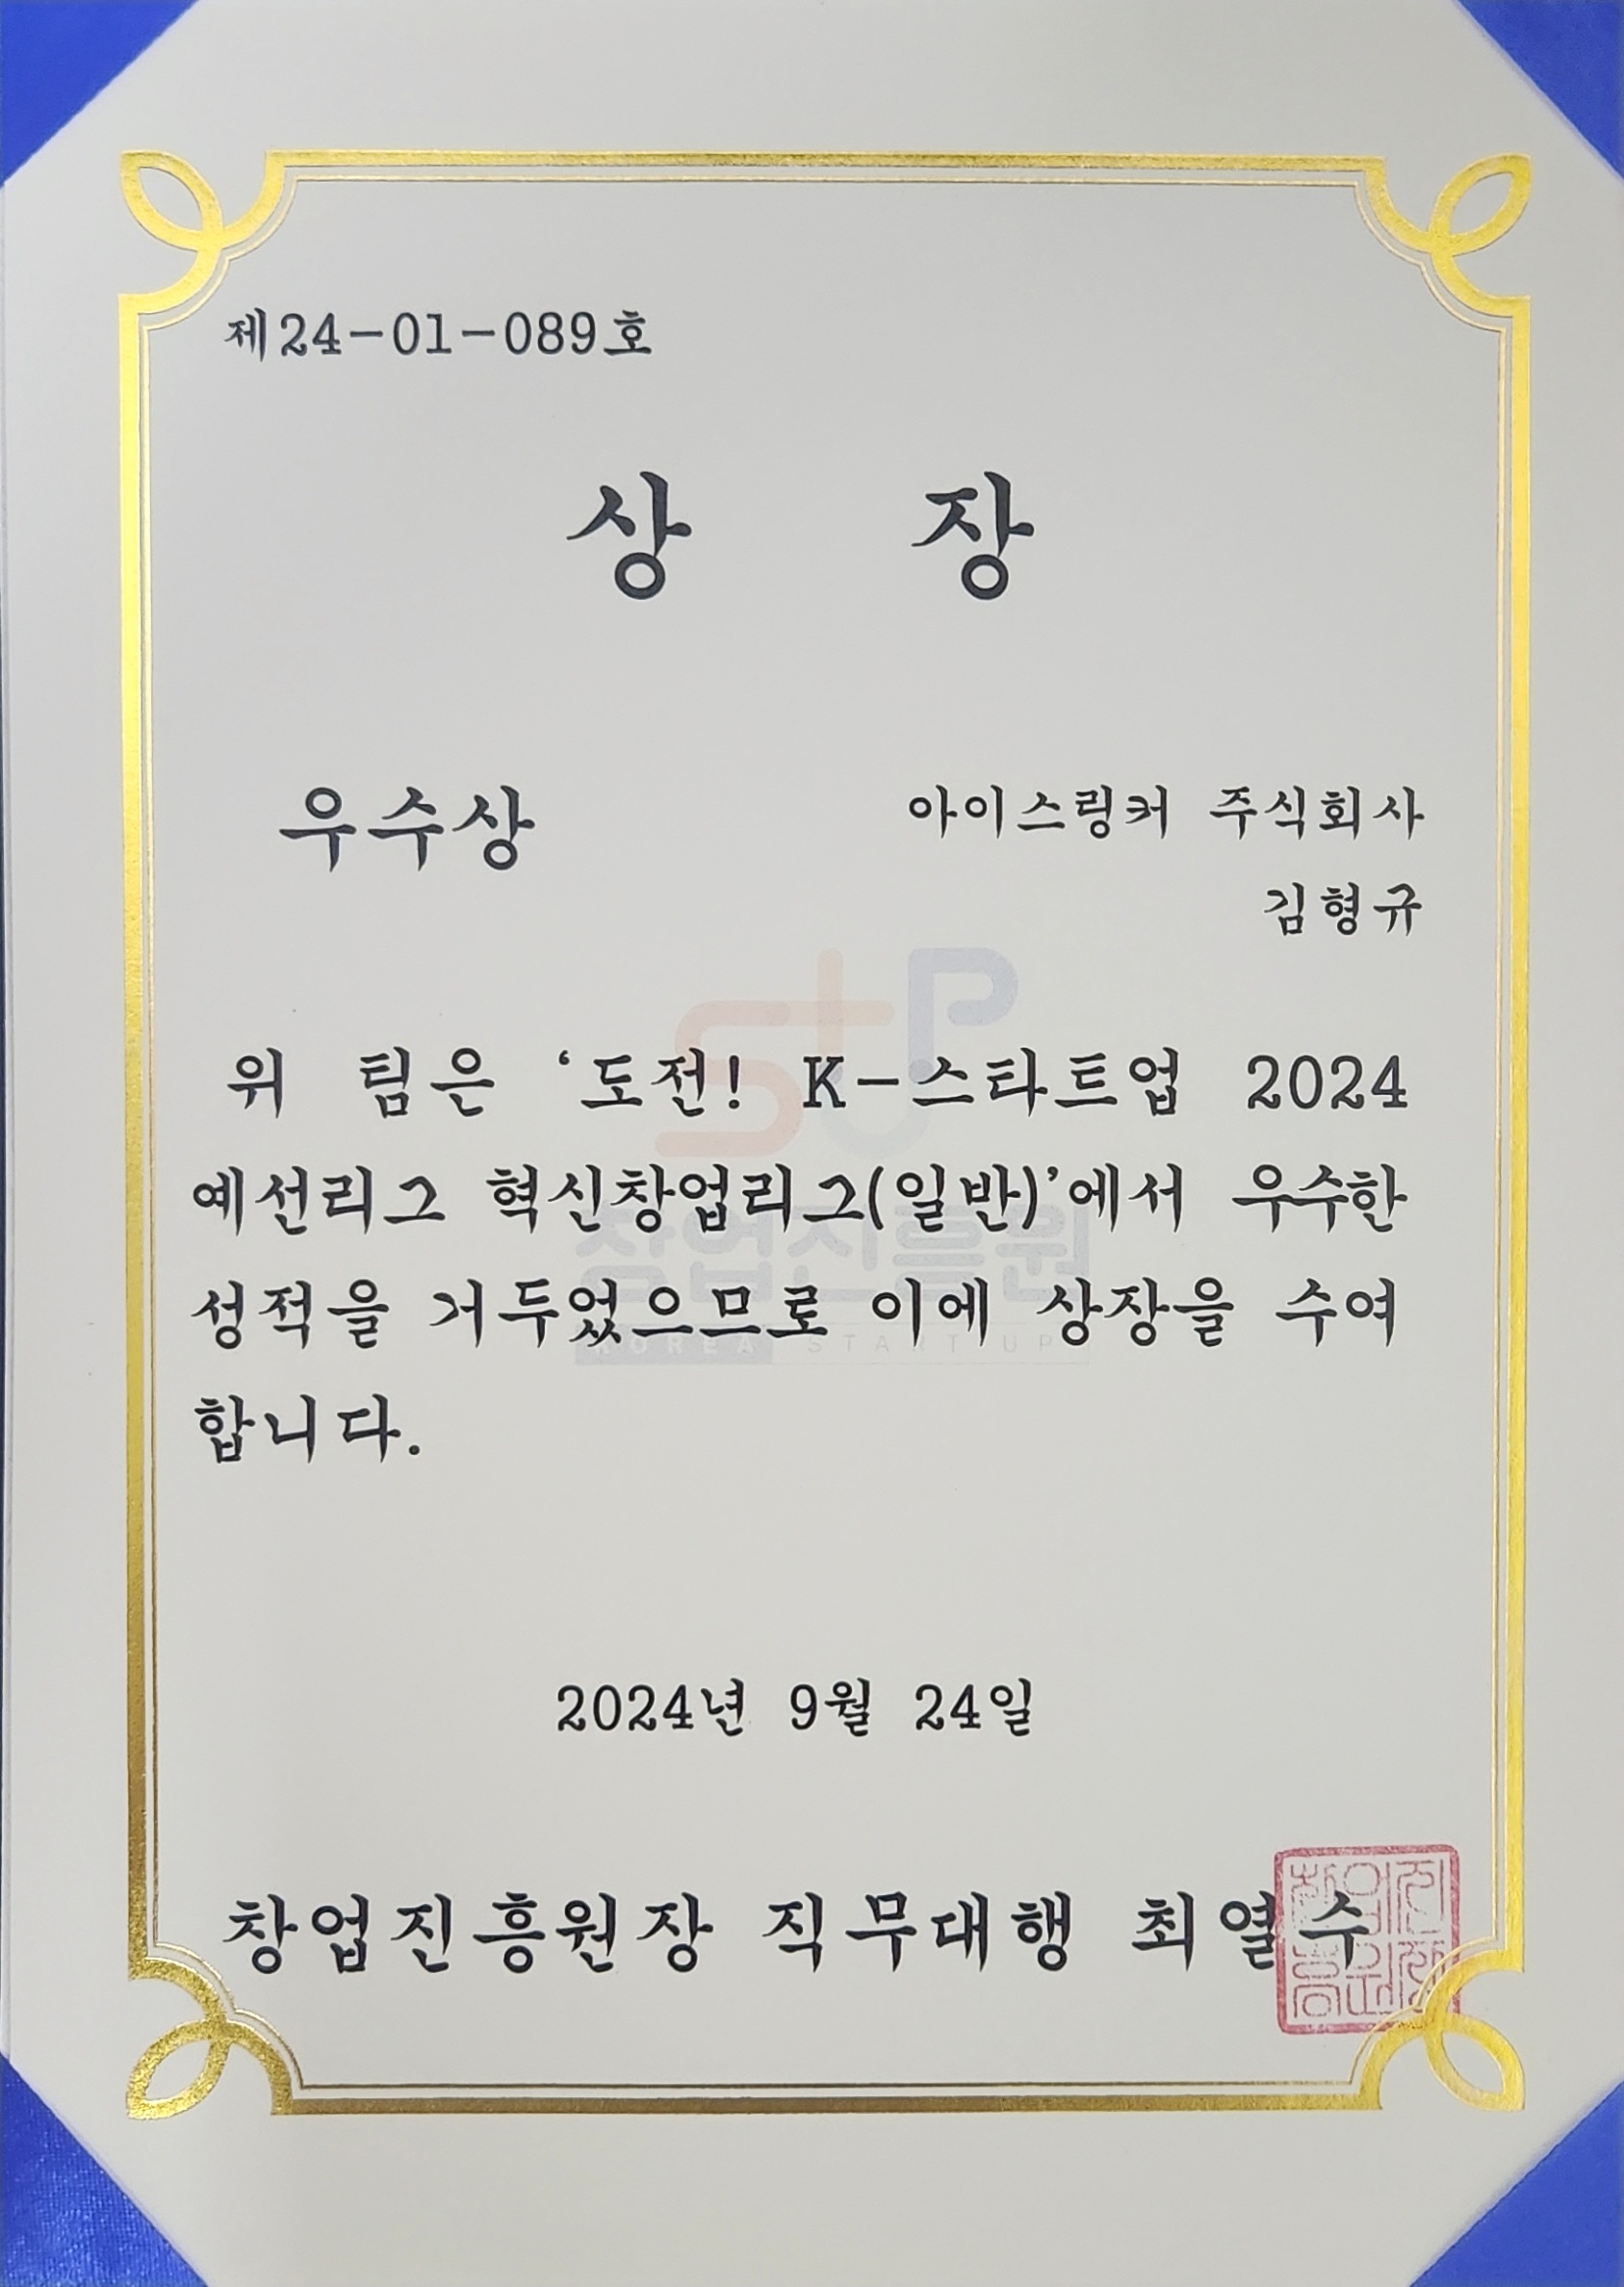 제24-01-089호
상 장
우수상
아이스링커 주식회사
김형규
위 팀은 ‘도전! K-스타트업 2024
예선리그 혁신창업리그(일반)’에서 우수한
성적을 거두었으므로 이에 상장을 수여
합니다.
stup
창업진흥원
KOREA START UP
2024년 9월 24일
창업진흥원장 직무대행 최열수